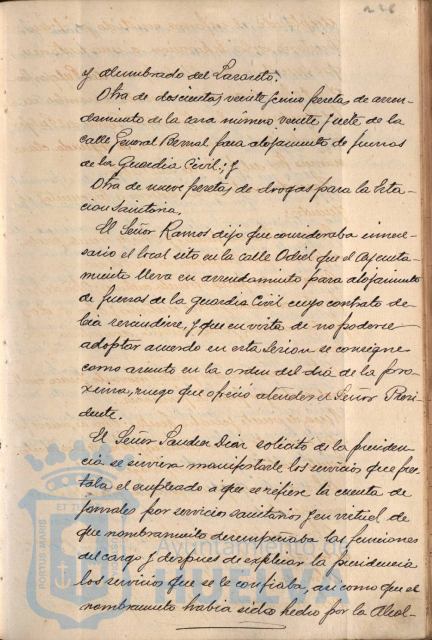 y alumbrado del Lazareto.
Otra de doscientas veinte y cinco pesetas de arren-
damiento de la casa número veinte y siete de la
calle General Bernal para alojamiento de fuerzas
de la Guardia Civil; y
Otra de nueve pesetas de drogas para la Esta-
cion Sanitaria.
El Señor Ramos dijo que consideraba innece-
sario el local sito en la calle Odiel que el Ayunta-
miento lleva en arrendamiento para alojamiento
de fuerzas de la guardia Civil cuyo contrato de-
bia rescindirse, y que en vista de no poderse
adoptar acuerdo en esta Sesion se consigne
como asunto en la orden del dia de la pro-
xima, ruego que ofreció atender el Señor Presi-
dente.
El Señor Saudia Diaz solicitó de la presiden-
cia se sirviera manifestarle los servicios que pres-
taba el empleado a que se refiere la cuenta de
jornales por servicios sanitarios y en virtud de
que nombramiento desempeñaba las funciones
del cargo y despues de explicar la presidencia
los servicios que se le confiaba, asi como que el
nombramiento habia sido hecho por la Alcal-
Ayuntamiento de
HUELVA
PORTUS MARIS
ET TERRAE